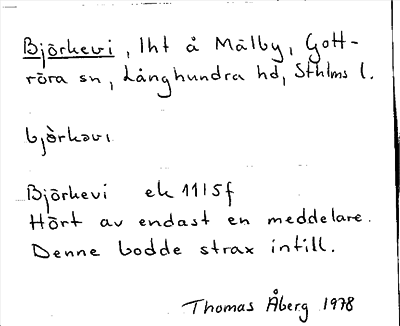 Björkevi, lht å Mälby, Gott-
röra sn, Långhundra hd, Sthlms l.
bjò̱rkəvı
Björkevi ek 11I5f
Hört av endast en meddelare.
Denne bodde strax intill.
Thomas Åberg 1978